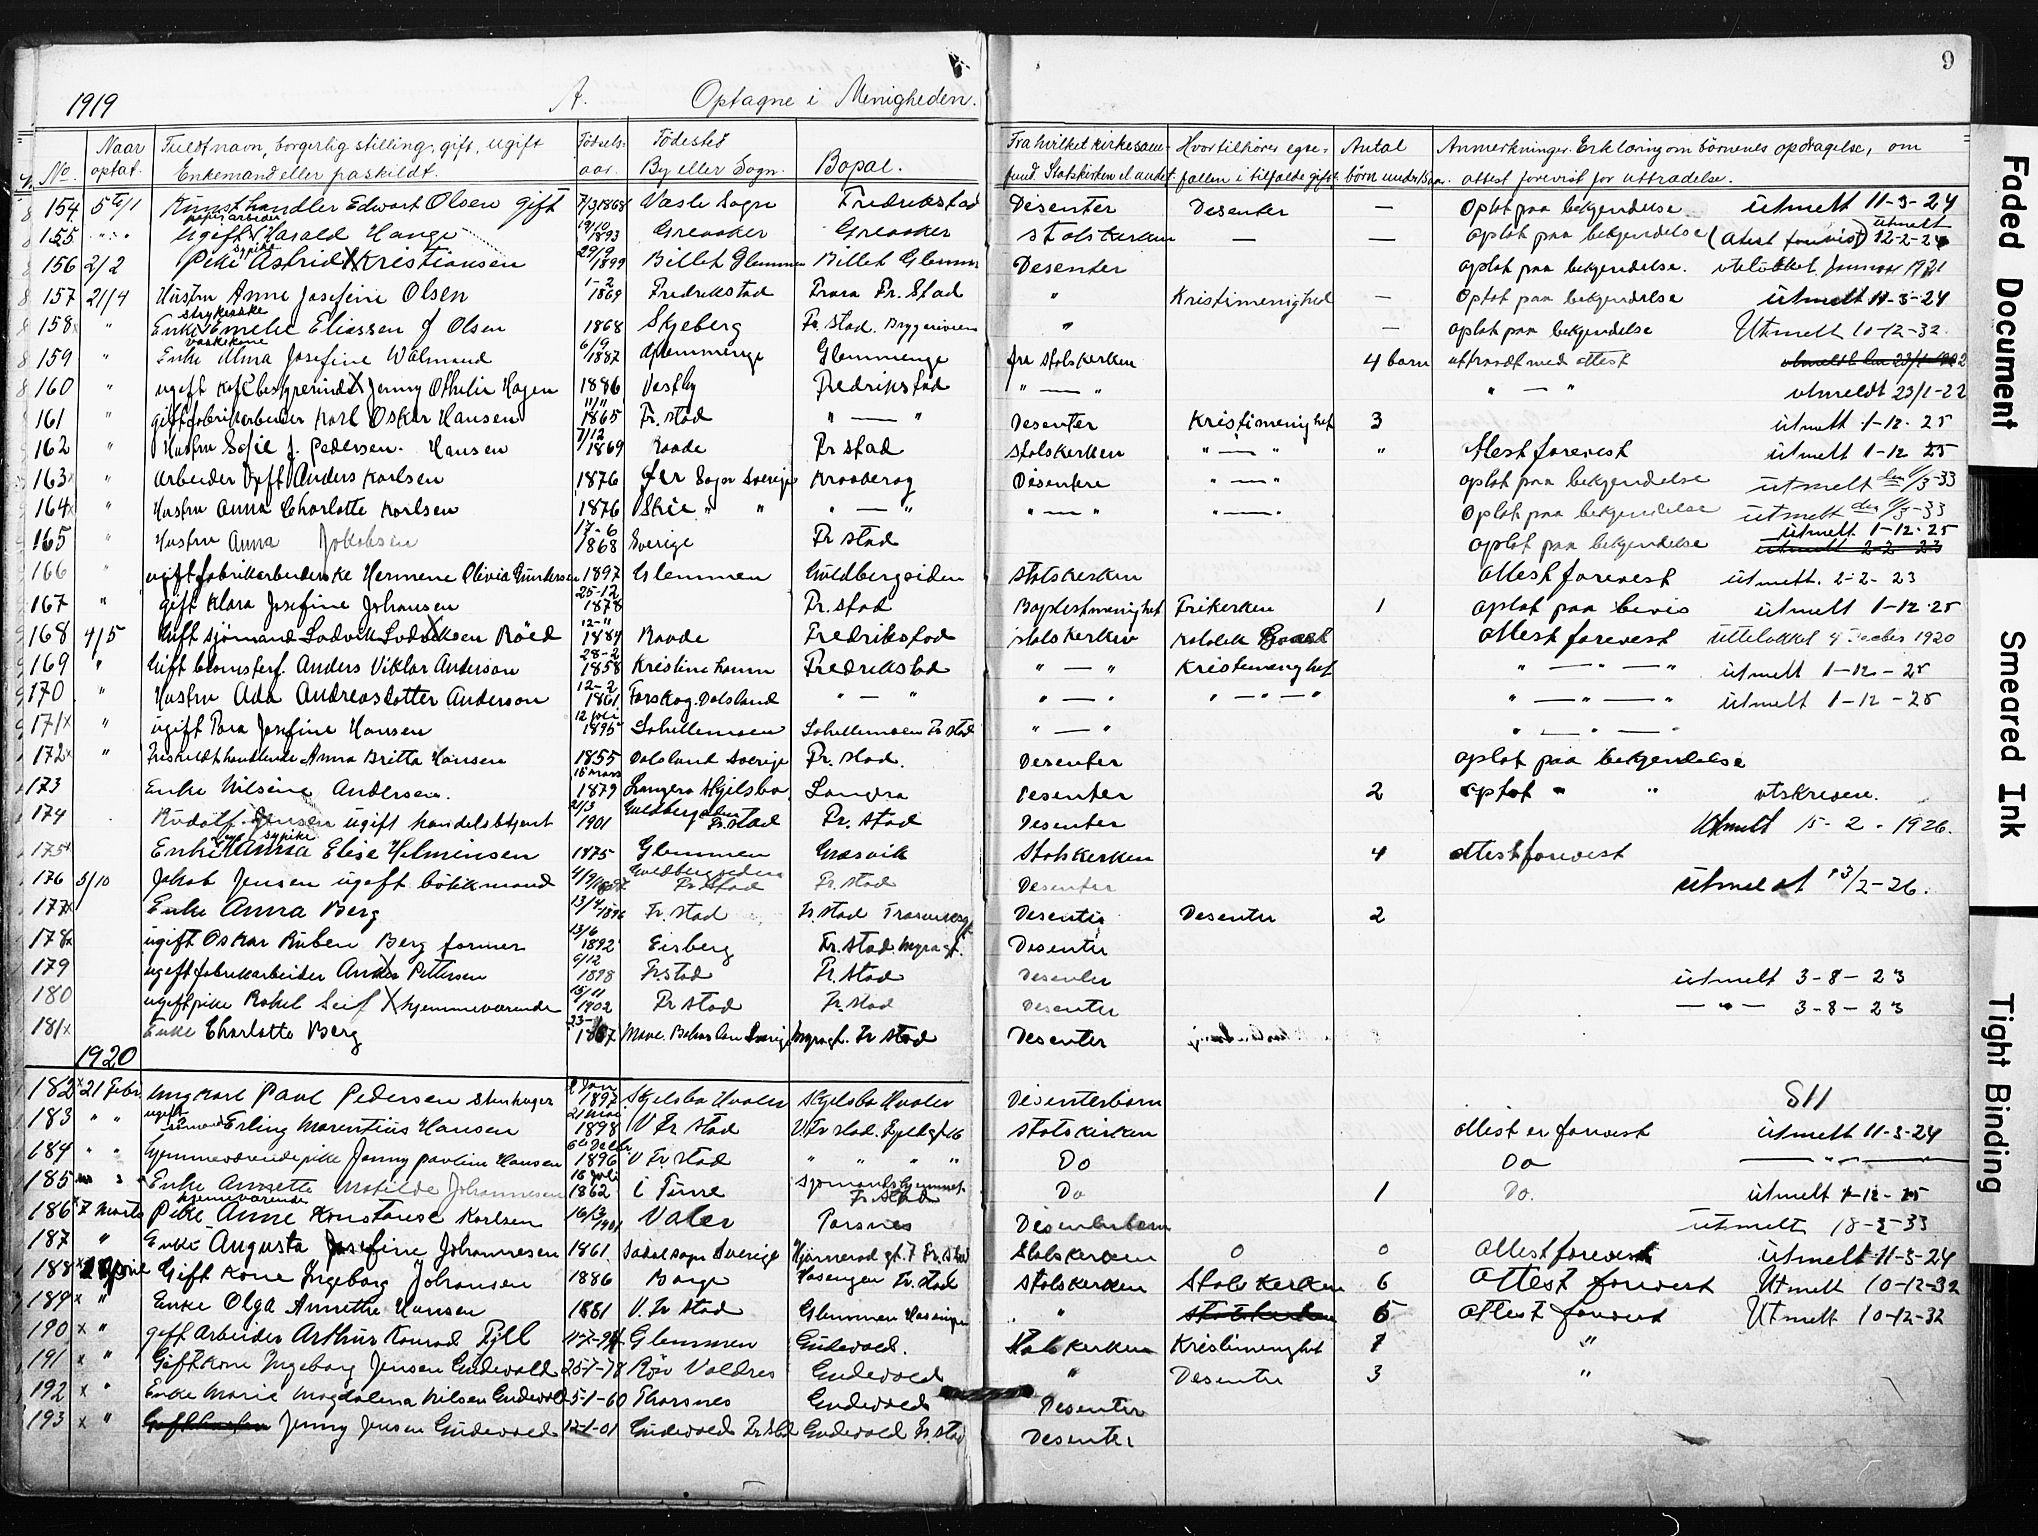 9
1919 A. Optagne i Menigheden.
No. Naar optat. Fuldt navn, borgerlig stilling, gift, ugift Enkemand eller fraskildt. Fødsels aar. Fødested By eller Sogn. Bopæl. Fra hvilket kirkesam- fund, Statskirken el. andet. Hvor tilhører egte- fællen i tilfælde gift. Antal børn under 15 aar. Anmerkninger. Erklæring om børnenes opdragelse, om attest forevist for uttrædelse.
154 5te/1 Kunsthandler Edwart Olsen gift 7/3 1868 Vaale Sogn Fredrikstad Desenter Desenter — Optat paa bekjendelse ütmelt 11-3-24
155 " papirarbeider ugift Harald Hauge 19/10 1893 Greaaker Greaaker Statskerken — — optat paa bekjendelse (Atest forevist) ütmelt 12-2-24
156 2/2 Pike sypike Astrid Kristiansen 1899 Billet Glemmen Billet Glemm Desenter optat paa bekjendelse. utelukket Januar 1921
157 21/4 Hustru Anne Josefine Olsen 1-2 1869 Fredrikstad Trara Fr. Stad " Kristimenighed — Optat paa bekjendelse ütmelt 11-3-24
158x " Enke strykeske Emelie Eliassen f Olsen 1868 Skjeberg Fr. stad. Bryggeriveien " — optat paa bekjendelse Utmelt 10-12-32
159 " Enke vaskekone Alma Josefine Walmand 6/9 1887 Glemmenge Glemmenge fra Statskerken 4 barn uttraadt med attest utmeldt den 23/1-1922
160 " ugift kafebestyrerinde Jenny Othilie Hagen 1886 Vestby Fredrikstad " — " " — " utmeldt 23/1-22
161 " gift fabrikarbeider Karl Oskar Hansen 11/11 1865 Fr. stad " — " Desenter Kristimenighet 3 ütmelt 1-12-25
162 " Hustru Sofie J. Pedersen. Hansen 7/12 1869 Raade Fr stad Statskerken " — " " Atest forevest ütmelt 1-12 25
163x " Arbeider Gift Anders Karlsen 1876 Ør Sogn Sverige Kraakerøy Desentere " — " optat paa bekjendelse utmelt den 1/3-33
164x " Hustru Anna Charlotte Karlsen 1876 " " " — " " — " " — " optat paa bekjendelse utmelt den 1/3-33
165 " Hustru Anna Jakobsen 17-6 1868 Sverige Fr stad optat paa bekjendelse ütmelt 1-12-25 ütmelt 2-2-23
166 " ugift fabrikarbeiderske Hermene Olivia Gundersen 1897 Glemmen Guldbergsiden Statskerken attest forevest ütmelt. 2-2-23
167 " gift Klara Josefine Johansen 25-12 1878 Fr. stad Baptestmenighet Frikerken 1 optat paa bevis ütmelt 1-12-25
168 4/5 Gift sjømand Ludvik Ludviksen Røed 12-11 1884 Raade Fredrikstad Statskerken Katolik attest forevest uttelukket 4 Decbr 1920
169 " Gift blomsterf. Anders Viktor Anderson 28-2 1858 Kristinehamn Fredrikstad " — " Kristemenighet " — " — " ütmelt 1-12-25
170 " Hustru Ada Andreasdotter Anderson 12-2 1861 Färskog. Dalsland " — " " — " " — " — " " — " — " ütmelt 1-12-25
171x " ugift Tora Josefine Hansen 12 Juli 1895 Lahellemoen Lahellemoen Fr stad " — " " — " — "
172x " Fraskildt handlende Anna Britta Hansen 1855 Dalsland Sverige Fr. stad. Desenter optat paa bekjendelse
173 Enke Nilsine Andersen. 15 Mars 1879 Langøra Kjølsbo Langøra Desenter 2 optat " " utskreven.
174 Rudolf Jensen ugift handelsbtjent 21/3 1901 Guldbergsiden Fr. stad Fr. stad Desenter Utmelt 15-2-1926.
175x Enke Anna Elise Helmensen 1875 Glemmen Græsvik Statskerken 4 attest forevest
176 5/10 Jakob Jensen ugift bötikmand 4/9 1897 Guldbergsiden Fr. Stad Fr. stad Desenter ütmeldt 13/2-26.
177x Enke Anna Berg 13/4 1896 Fr. stad Fr. stad Traraveien Desenter Desenter 2
178x ugift Oskar Ruben Berg former 13/6 1892 Eisberg Fr. Stad. Myragt. Desenter
179 ugift fabrikarbeider Anders Pettersen 6/12 1898 Fr stad Fr. stad Desenter ütmelt 3-8-23
180 ugift pike Rakel Seif hjemmeværende 15/11 1902 Fr stad Fr. stad Desenter — " — 3-8-23
181x Enke Charlotte Berg 23- 1867 Bohus len Sverige Myragt. Fr stad Desenter
1920
182x 21 Febr. ungkarl Paul Pedersen stenhuger 2 Jan 1897 Skjelsbo Hvaler Skjelsbo Hvaler Desenterbarn S11
183 " " ugift sømand Erling Marentius Hansen 21 Mai 1898 V Fr stad V. Fr stad. Fjeldgt 16 Statskirken attest er forevest ütmelt 11-3-24
184 " " hjemmeværende pike Jenny Pavline Hansen 6te Decbr 1896 V Fr stad " " " " Do Do — " —
185 " " Enke Annette Matilde Johannesen 16 Juli 1862 i Tune Sjømandshjemmet Fr. Stad Do 1 Do. ütmelt 1-12-25
186x 7 Marts Pike hjemmeværende Anne Konstanse Karlsen 16/3 1901 Valer Torsnes Desenterbarn utmelt 18-3-33
187 " Enke Augusta Josefine Johannesen 1861 Sverige Hjørnerød gt. 7 Fr. Stad Statskerken 0 0 Attest forevest ütmelt 11-3-24
188x April Gift Kone Ingeborg Johansen 1886 Borge Hasengen Fr. stad Statskerken Statskerken 6 Attest forevest Utmelt 10-12-32
189x " Enke Olga Annethe Hansen 1881 V. Fr stad Glemmen Hassingen " Statskerken 5 Attest forevest Utmelt 10-12-32
190x " gift Arbeider Arthur Konrad Fjell Glemmen Gudevold. Statskerken Kristimenighet 1 "
191x " Gift Kone Ingeborg Jensen Gudevold 25-1-78 Røn Valdres Gudevold " Desenter 3 "
192x " Enke Marie Magdalena Nilsen Gudevold 25-1-60 Thorsnes Gudevold Desenter
193x " Jenny Jensen Gudevold 12-1-01 Gudevold Fr. Stad Gudevold Fr. stad Desenter
Faded Document
Smeared Ink
Tight Binding